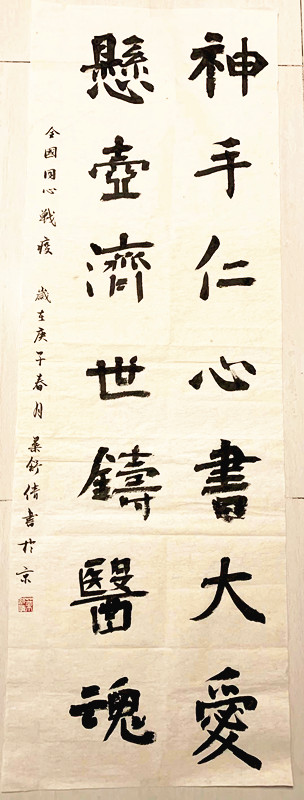 神手仁心書大愛
懸壺濟世鑄醫魂
全国同心戰疫 歲在庚子春月 葉舒倩書於京